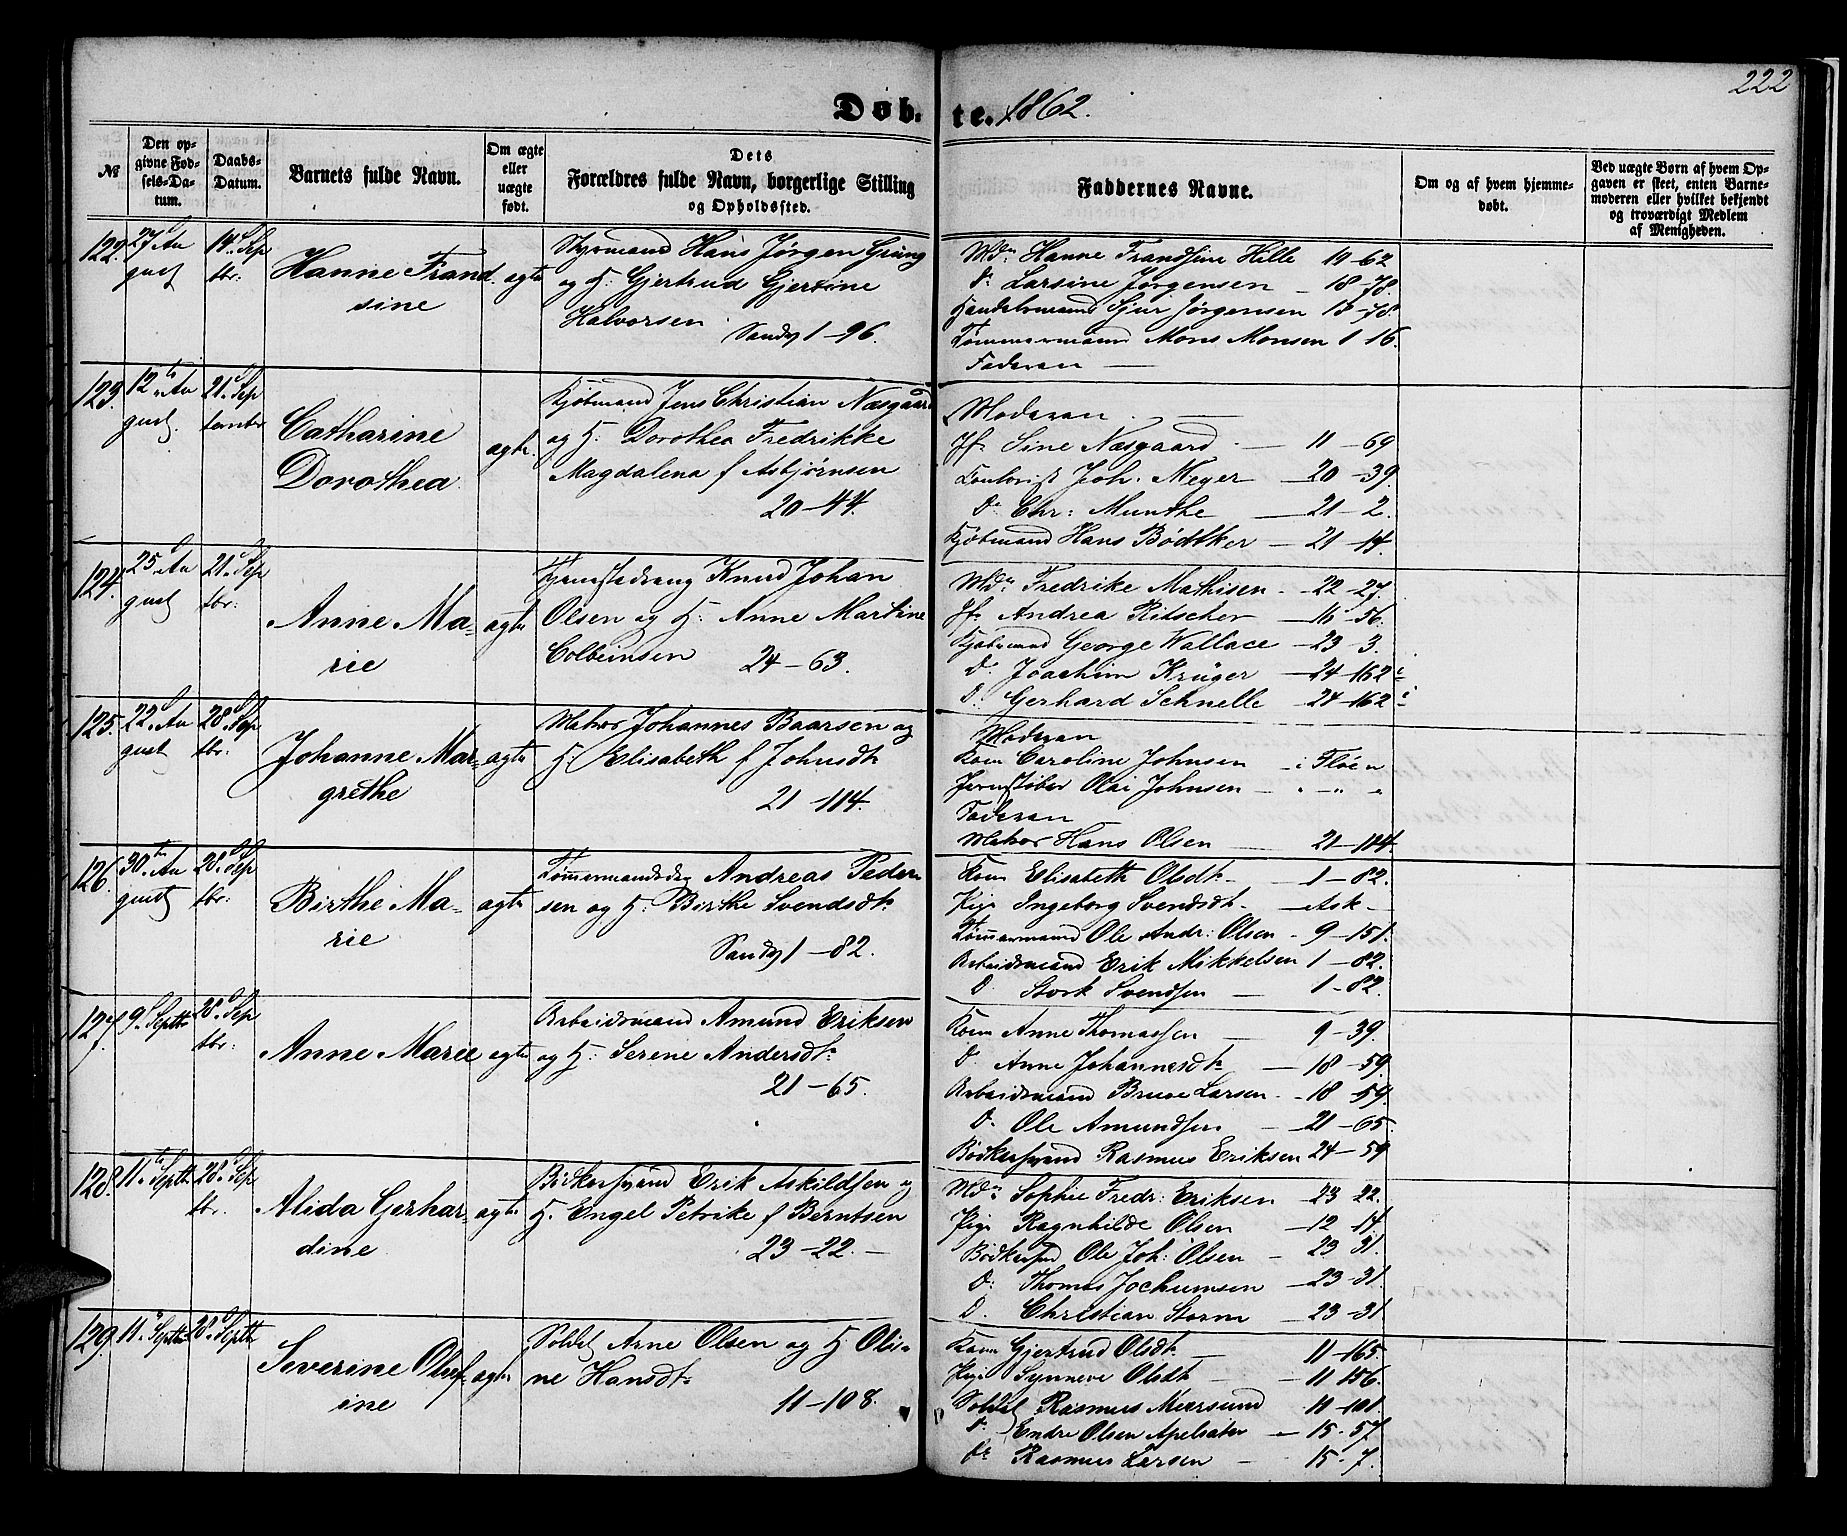 222
Døbte. 1862.
№
Den opgivne Fødsels-Datum.
Daabs-Datum.
Barnets fulde Navn.
Om ægte eller uægte født.
Dets
Forældres fulde Navn, borgerlige Stilling
og Opholdssted.
Faddernes Navne.
Om og af hvem hjemmedøbt.
Ved uægte Børn af hvem Opgaven er skeet, enten Barnemoderen eller hvilket bekjendt og troværdigt Medlem af Menigheden.
122. 27 August 14 Sepbr: Hanne Frandsine ægte
Styrmand Hans Jørgen
og H: Gjertrud Gjersine
Halvorsen Sandv 1-96.
Md. Hanne Frandsine Hille 19-62
D. Larsine Jørgensen - 18-78.
Handelsmand Sjur Jørgensen 18-78.
Tømmermand Mons Monsen 1-16.
Faderen
123. 12 August. 21 September Catharine Dorothea ægte.
Kjøbmand Jens Christian Næsgaard
og H: Dorothea Fredrikke
Magdalena f Asbjørnsen
20-44.
Moderen
Jfr Sine Næsgaard - 11-69
Contorist Joh. Meyer - 20-39.
D. Chr: Munthe - 21-2.
Kjøbmand Hans Bødtker - 21-14.
124. 25 August 21 Sepbr: Anne Marie ægte
Knud Johan
Olsen og H: Anne Martine
Colbeinsen 24-63.
Md. Fredrike Mathisen - 22-27.
Jfr Andrea Ritscher - 16-56.
Kjøbmand George Wallace - 23-3.
D. Joachim Krüger - 24-162
D. Gerhard Schnelle - 24-162
125. 22 August 28 Sepbr: Johanne Margrethe ægte
Matros Johannes Baarsen og
H: Elisabeth f Johnsdtr
21-114.
Moderen
Kone Caroline Johnsen - i Floe
Jernstøber Olai Johnsen - " - "
Faderen
Matros Hans Olsen - 21-114.
126. 30 August 28 Sepbr: Birthe Marie ægte
Tømmermandsdrg Andreas Pedersen
og H: Birthe Svendsdtr
Sandv 1-82.
Kone Elisabeth Olsdtr - 1-82.
Pige Ingeborg Svendsdtr - Ask -
Tømmermand Ole Andr: Olsen - 9-151.
Arbeidsmand Erik Mikkelsen 1-82.
D. Stork Svendsen - 1-82.
127. 9 Septbr 28 Sepbr: Anne Marie ægte
Arbeidsmand Amund Eriksen
og H: Serene Andersdtr
21-65.
Kone Anne Thomassen - 9-39.
D. Anne Johannesdtr - 18-59.
Arbeidsmand Brune Larsen - 18-59.
D. Ole Amundsen - 21-65.
Bødkersvend Rasmus Eriksen 24-59
128. 11 Septb 28 Sepbr. Alida Gerhardine ægte
Bødkersvend Erik Askildsen og
H. Engel Petrike f Berntsen
23-22.-
Md. Sophie Fredr: Eriksen - 23-22.
Pige Ragnhilde Olsen - 12-14.
Bødkersvd Ole Joh: Olsen - 23-31.
D. Thomas Jochumsen - 23-31
D. Christian Storm - 23-31.
129. 11 Septbr 28 Septb Severine Olufine ægte
Soldat Arne Olsen og H Oline
Hansdtr
11-108.
Kone Gjertrud Olsdtr - 11-165.
Pige Synneve Olsdtr - 11-156.
Soldat Rasmus Mærsund 11-101.
D. Endre Olsen Apelsæter - 15-57.
D. Rasmus Larsen - 15-7.